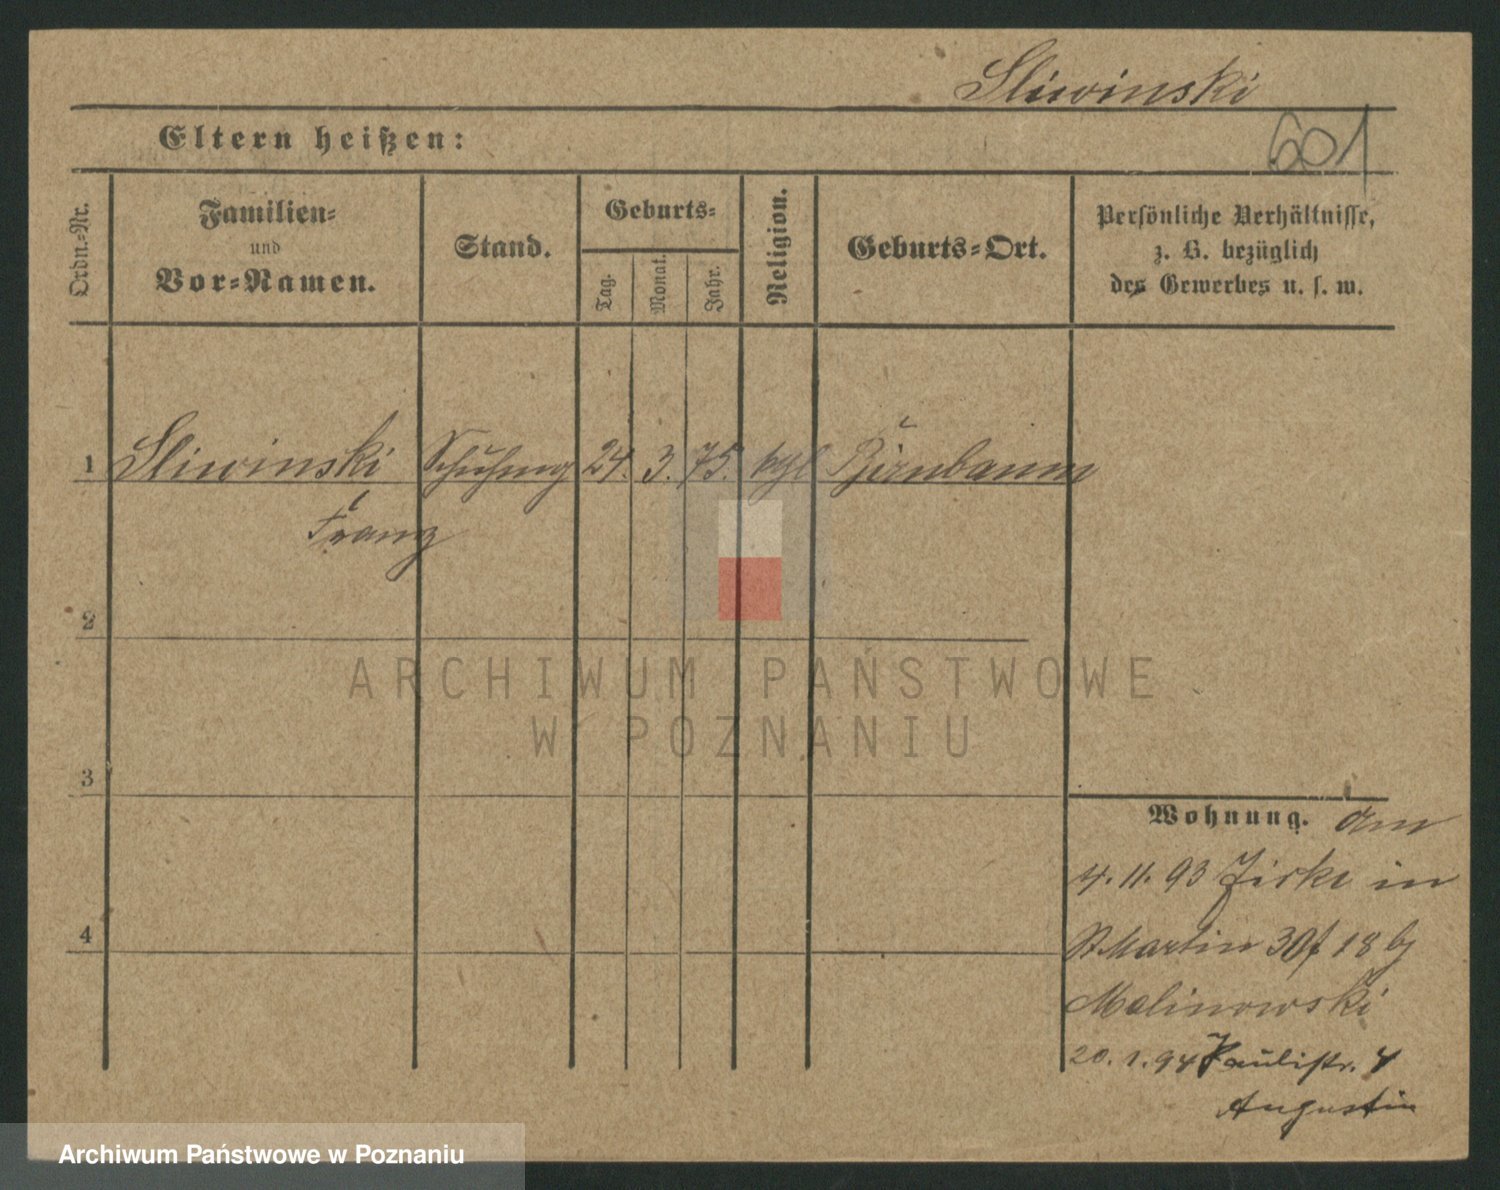 Sliwinski
Eltern heißen:
601
Ordn.-Nr.
Familien-
und
Vor-Namen.
Stand.
Geburts-
Tag.
Monat.
Jahr.
Religion.
Geburts-Ort.
Persönliche Verhältnisse,
z. B. bezüglich
des Gewerbes u. s. w.
1 Sliwinski 24. 3. 75. kthl Birnbaum
Franz
2
3
4
Wohnung. am
4. 11. 93 in
St Martin 18 bj
Malinowski
20. 1. 94 Paulistr. 4
Augustin
ARCHIWUM PAŃSTWOWE
W POZNANIU
Archiwum Państwowe w Poznaniu